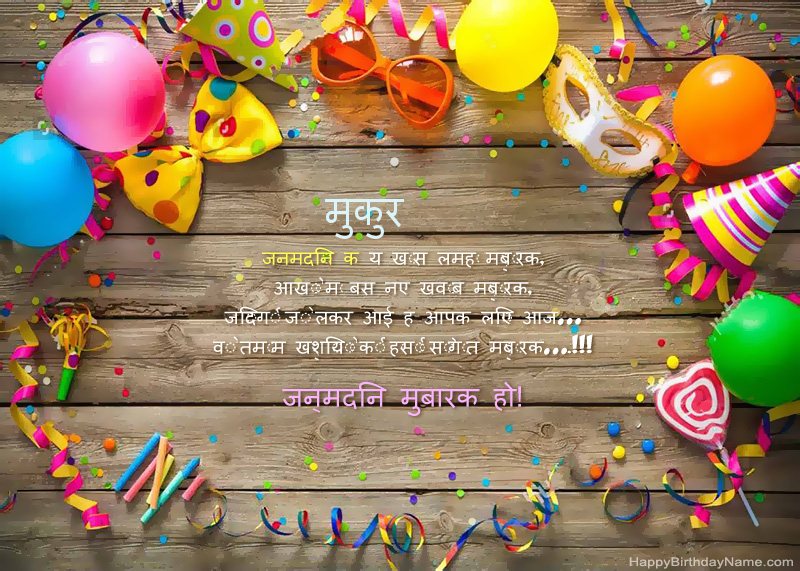 मुकुर
जनमदिन क य ख़ास लमह मबारक,
आखों में बस नए ख़वाब मबारक,
जिंदगी जो लेकर आई ह आपक लिए आज...
वो तमाम खुशियों की हंसी सौगात मबारक...!!!
जन्मदिन मुबारक हो!
HappyBirthdayName.com